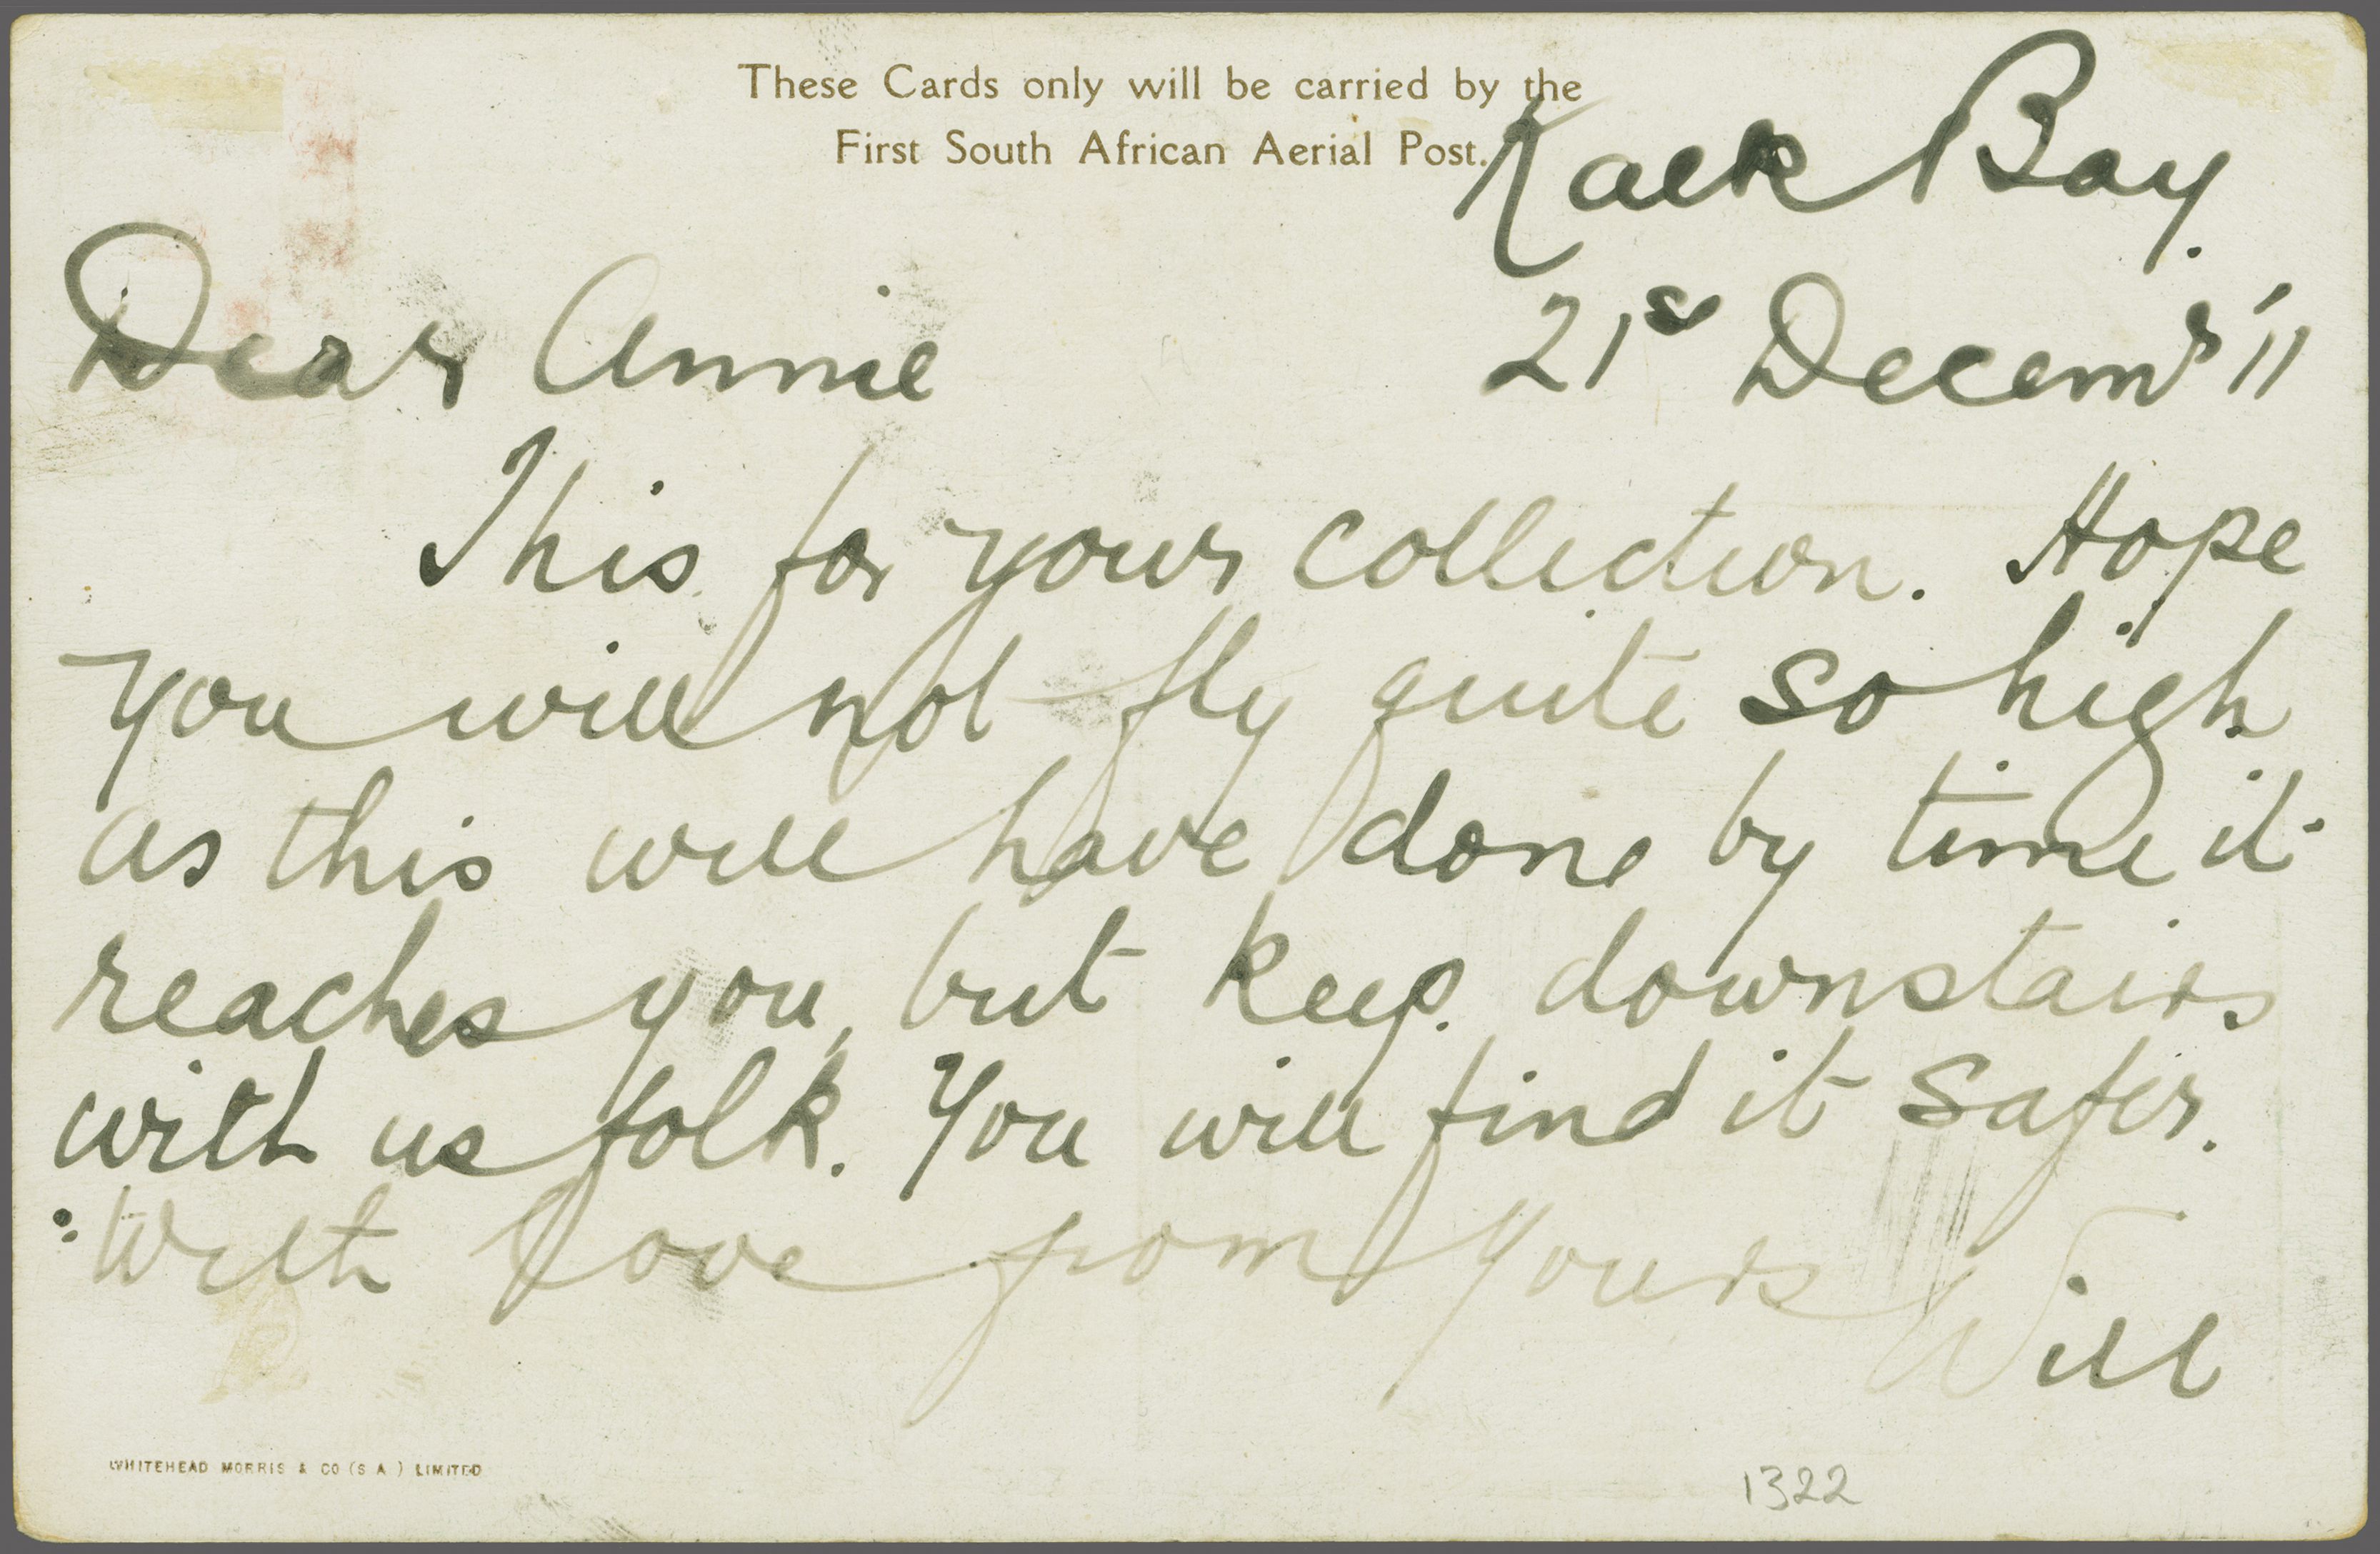 These Cards only will be carried by the
First South African Aerial Post.
Kalk Bay.
21st Decemr '11
Dear Annie
This for your collection. Hope
you will not fly quite so high
as this will have done by time it
reaches you, but keep downstairs
with us folk. You will find it safer.
With love from Yours
Will
WHITEHEAD MORRIS & CO (S A) LIMITED
1322